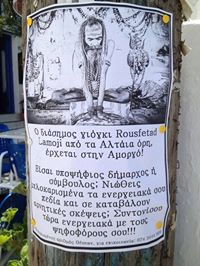 Ο διάσημος γιόγκι Rousfetad
Lamoji από τα Αλτάια όρη,
έρχεται στην Αμοργό!
Είσαι υποψήφιος δήμαρχος ή
σύμβουλος; Νιώθεις
μπλοκαρισμένα τα ενεργειακά σου
πεδία και σε καταβάλουν
αρνητικές σκέψεις; Συντονίσου
τώρα ενεργειακά με τους
ψηφοφόρους σου!!!
αριθμός θέσεων, για επικοινωνία: